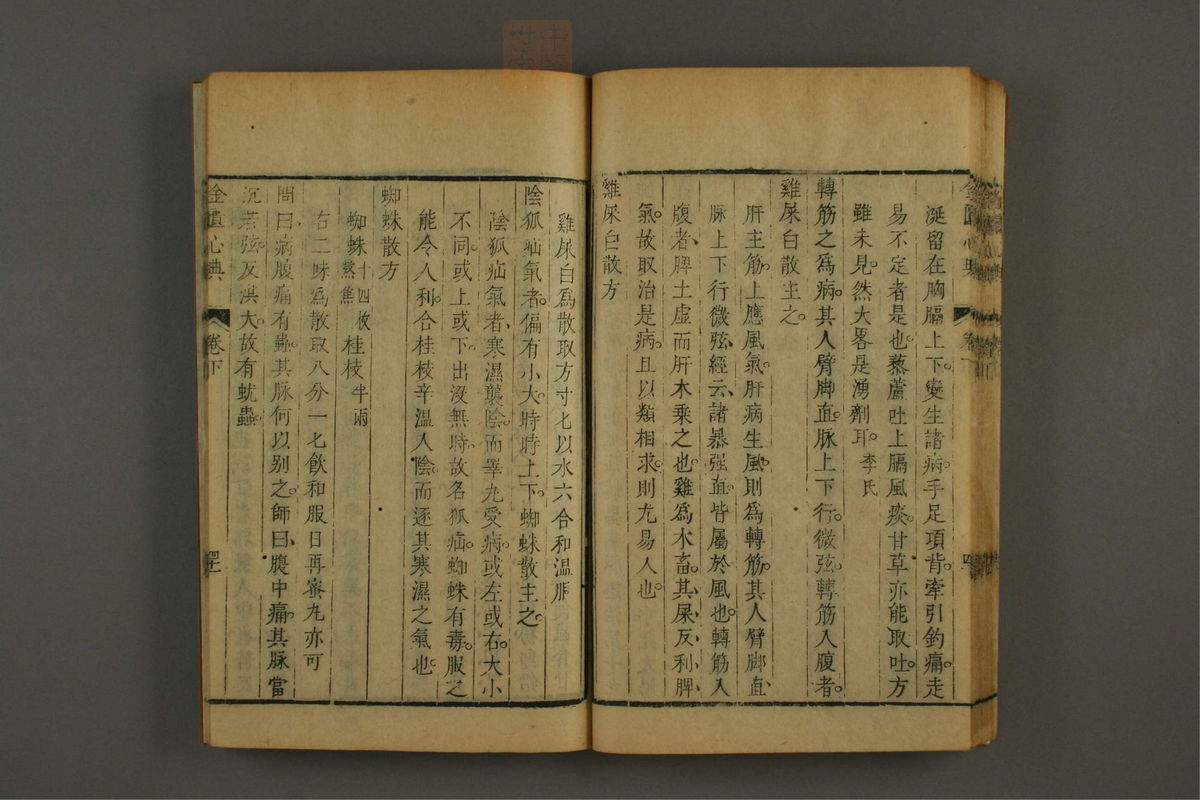 涎留在胸膈上下。變生諸病。手足項背。牽引釣痛。走
易不定者是也。藜蘆吐上膈風痰。甘草亦能取吐。方
雖未見。然大畧是湧劑耳。李氏
轉筋之爲病。其人臂脚直。脉上下行。微弦。轉筋入腹者。
雞屎白散主之。
肝主筋。上應風氣。肝病生風。則爲轉筋。其人臂脚直、
脉上下行。微弦。經云、諸暴强直。皆屬於風也。轉筋入
腹者、脾土虛而肝木乘之也。雞爲木畜。其屎反利脾
氣。故取治是病。且以類相求。則尤易人也。
雞屎白散方
雞屎白爲散取方寸匕以水六合和溫服
陰狐疝氣者。偏有小大。時時上下。蜘蛛散主之。
陰狐疝氣者、寒濕襲陰。而睾丸受病。或左或右。大小
不同。或上或下。出沒無時。故名狐疝。蜘蛛有毒。服之
能令人利。合桂枝辛溫入陰。而逐其寒濕之氣也。
蜘蛛散方
蜘蛛十四枚熬焦 桂枝半兩
右二味爲散取八分一匕飲和服日再蜜丸亦可
問曰、病腹痛有蟲。其脉何以別之。師曰、腹中痛。其脉當
沉若弦。反洪大。故有蚘蟲。
金匱心典 卷下